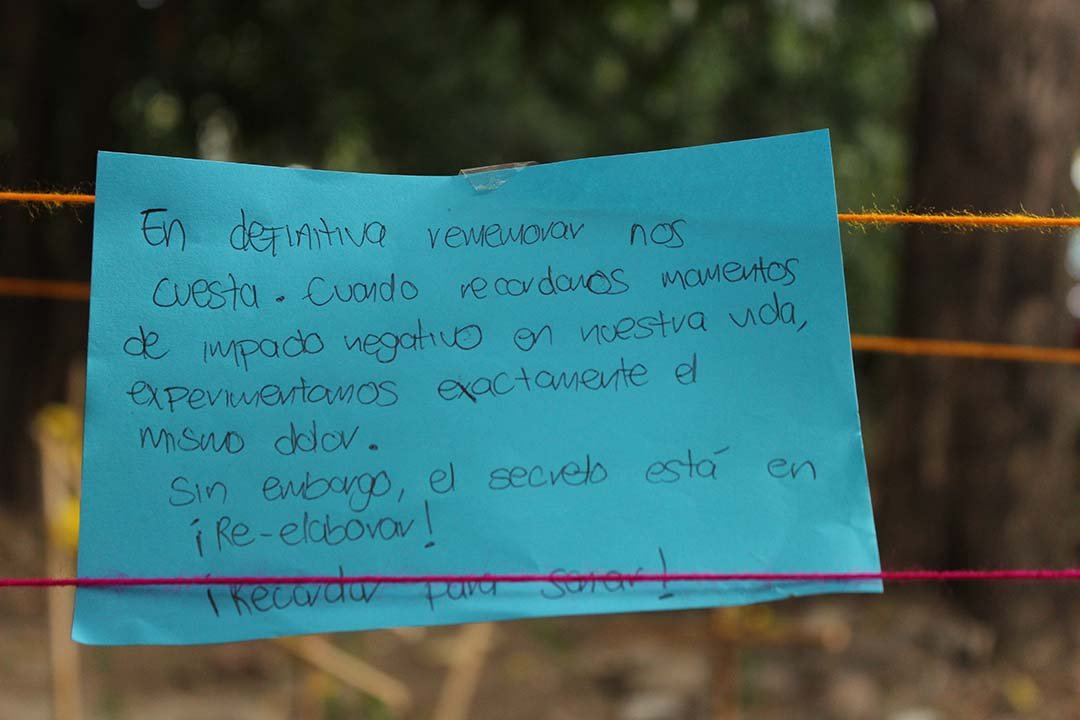 En definitiva rememorar nos
cuesta. Cuando recordamos momentos
de impacto negativo en nuestra vida,
experimentamos exactamente el
mismo dolor.
Sin embargo, el secreto está en
¡Re-elaborar!
¡Recordar para sanar!